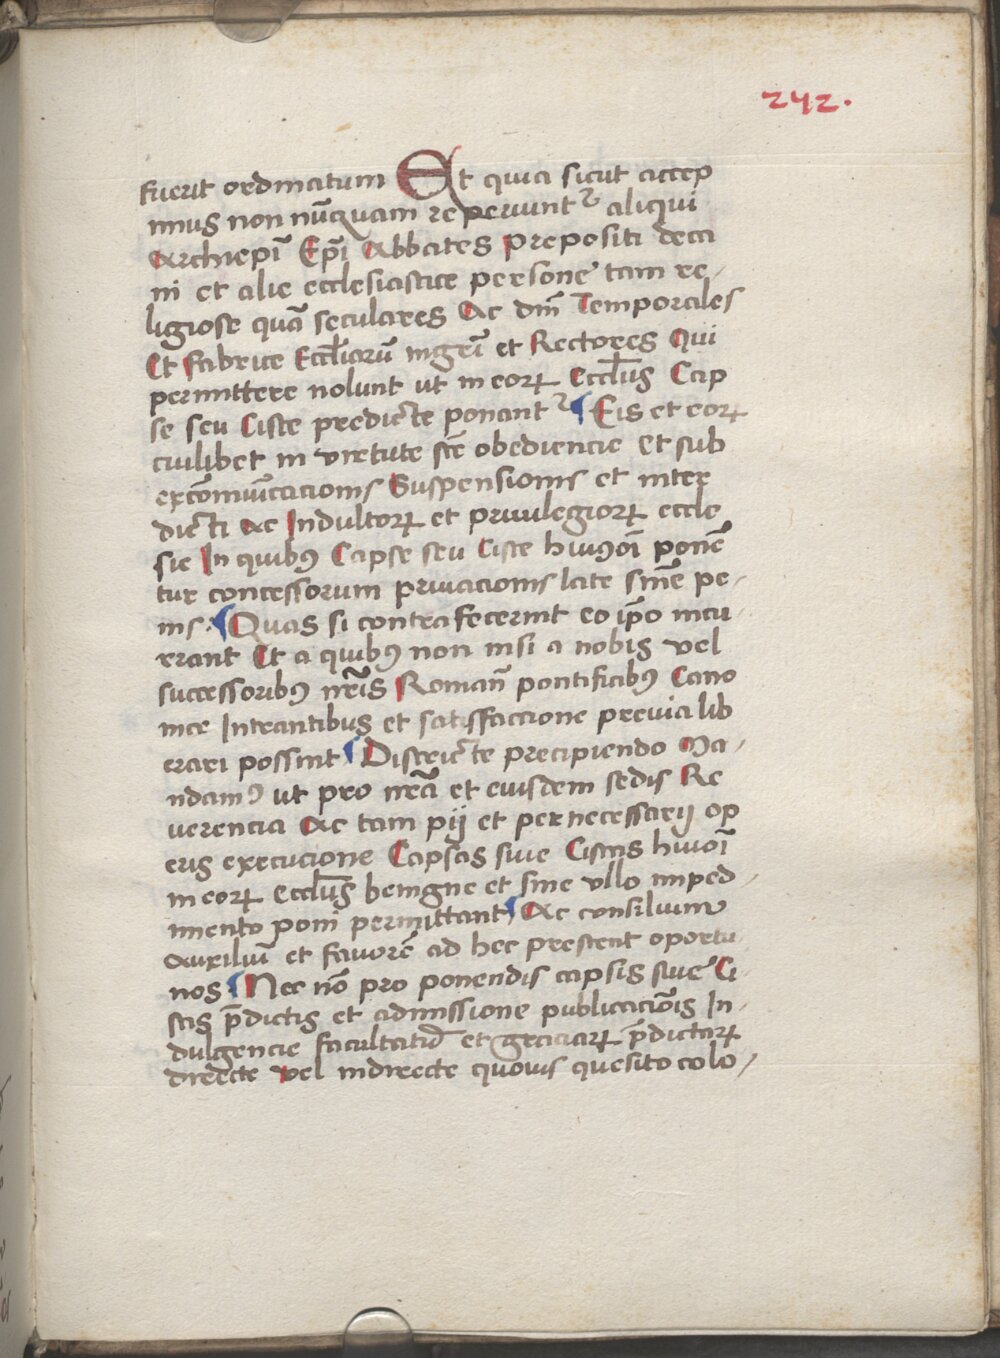 242.
fuerit ordinatum Et quia sicut accep
imus non nūquam reperiunt᷑ aliqui
Archiepī Ep̄i Abbates Prepositi deca
ni et alie ecclesiastice persone tam re/
ligiose quā seculares Ac dn̄i Temporales
Et fabrice Eccl̄iarū mgrī et Rectores Qui
permittere nolunt ut in eorꝝ Eccl̄iis Cap
se seu Ciste predicte ponant᷑ ¶ Eis et eorꝝ
cuilibet in virtute sc̄e obediencie Et sub
excōmunīcacionis Suspensionis et inter
dicti Ac Indultorꝝ et priuilegiorꝝ eccle
sie In quibꝰ Capse seu Ciste huiꝰōi ponē
tur concessorum priuacionis late sn̄ie pe/
nis: ¶ Quas si contra fecerint eo ip̄o incu
rrant Et a quibꝰ non nisi a nobis vel
successoribꝰ nr̄is Roman̄ pontificibꝰ Cano
nice Intrantibus et satisfaccione preuia lib
erari possint ¶ Districte precipiendo Ma/
ndamꝰ ut pro nr̄a et eiusdem sedis Re
uerencia Ac tam pij et pernecessarij op
eris execucione Capsas siue Cistas huiōi
in eorꝝ eccl̄iis benigne et sine vllo imped/
imento poni permittant ¶ Ac consilium
Auxiliū et fauorē ad hec prestent oportu
nos ¶ Nec nō pro ponendis capsis siue Ci/
stis p̄dictis et admissione publicacīonis In/
dulgencie facultatū et graciarꝝ p̄dictarꝝ
directe vel indirecte quouis quesito colo/